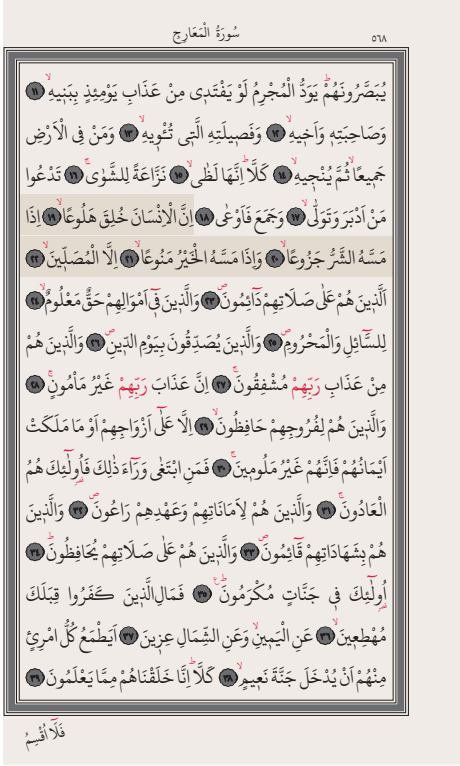 سُورَةُ الْمَعَارِجِ ٥٦٨
يُبَصَّرُونَهُمْۜ يَوَدُّ الْمُجْرِمُ لَوْ يَفْتَد۪ي مِنْ عَذَابِ يَوْمِئِذٍ بِبَن۪يهِۙ ١١
وَصَاحِبَتِه۪ وَاَخ۪يهِۙ ١٢ وَفَص۪يلَتِهِ الَّت۪ي تُـْٔو۪يهِۙ ١٣ وَمَنْ فِي الْاَرْضِ
جَم۪يعًاۙ ثُمَّ يُنْج۪يهِۙ ١٤ كَلَّاۜ اِنَّهَا لَظٰىۙ ١٥ نَزَّاعَةً لِلشَّوٰىۚ ١٦ تَدْعُوا
مَنْ اَدْبَرَ وَتَوَلّٰىۙ ١٧ وَجَمَعَ فَاَوْعٰى ١٨ اِنَّ الْاِنْسَانَ خُلِقَ هَلُوعًاۙ ١٩ اِذَا
مَسَّهُ الشَّرُّ جَزُوعًاۙ ٢٠ وَاِذَا مَسَّهُ الْخَيْرُ مَنُوعًاۙ ٢١ اِلَّا الْمُصَلّ۪ينَۙ ٢٢
اَلَّذ۪ينَ هُمْ عَلٰى صَلَاتِهِمْ دَٓائِمُونَۖ ٢٣ وَالَّذ۪ينَ ف۪ٓي اَمْوَالِهِمْ حَقٌّ مَعْلُومٌۙ ٢٤
لِلسَّٓائِلِ وَالْمَحْرُومِۖ ٢٥ وَالَّذ۪ينَ يُصَدِّقُونَ بِيَوْمِ الدّ۪ينِۖ ٢٦ وَالَّذ۪ينَ هُمْ
مِنْ عَذَابِ رَبِّهِمْ مُشْفِقُونَۚ ٢٧ اِنَّ عَذَابَ رَبِّهِمْ غَيْرُ مَأْمُونٍۚ ٢٨
وَالَّذ۪ينَ هُمْ لِفُرُوجِهِمْ حَافِظُونَۙ ٢٩ اِلَّا عَلٰٓى اَزْوَاجِهِمْ اَوْ مَا مَلَكَتْ
اَيْمَانُهُمْ فَاِنَّهُمْ غَيْرُ مَلُوم۪ينَۚ ٣٠ فَمَنِ ابْتَغٰى وَرَٓاءَ ذٰلِكَ فَاُو۬لٰٓئِكَ هُمُ
الْعَادُونَۚ ٣١ وَالَّذ۪ينَ هُمْ لِاَمَانَاتِهِمْ وَعَهْدِهِمْ رَاعُونَۖ ٣٢ وَالَّذ۪ينَ
هُمْ بِشَهَادَاتِهِمْ قَٓائِمُونَۖ ٣٣ وَالَّذ۪ينَ هُمْ عَلٰى صَلَاتِهِمْ يُحَافِظُونَۜ ٣٤
اُو۬لٰٓئِكَ ف۪ي جَنَّاتٍ مُكْرَمُونَۜ ٣٥ فَمَالِ الَّذ۪ينَ كَفَرُوا قِبَلَكَ
مُهْطِع۪ينَۙ ٣٦ عَنِ الْيَم۪ينِ وَعَنِ الشِّمَالِ عِز۪ينَ ٣٧ اَيَطْمَعُ كُلُّ امْرِئٍ
مِنْهُمْ اَنْ يُدْخَلَ جَنَّةَ نَع۪يمٍۙ ٣٨ كَلَّاۜ اِنَّا خَلَقْنَاهُمْ مِمَّا يَعْلَمُونَ ٣٩
فَلَٓا اُقْسِمُ